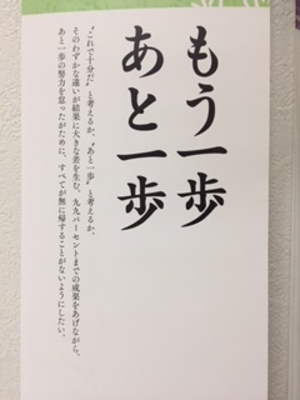 もう一歩
あと一歩
〝これで十分だ〟と考えるか、〝あと一歩〟と考えるか。
そのわずかな違いが結果に大きな差を生む。九九パーセントまでの成果をあげながら、
あと一歩の努力を怠ったがために、すべてが無に帰することがないようにしたい。